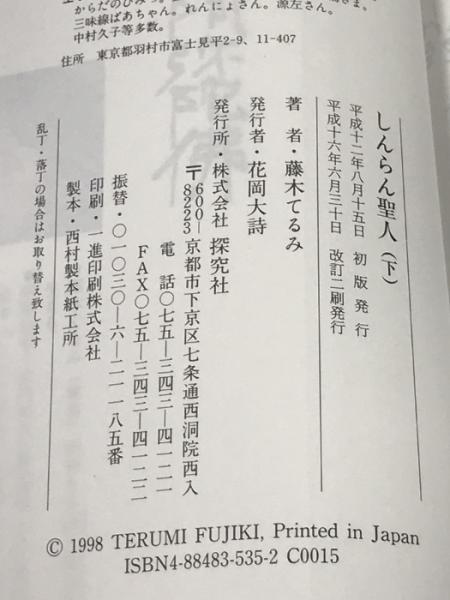 からだのひみつ。
三味線ばあちゃん。れんにょさん。源左さん。
中村久子等多数。
住所 東京都羽村市富士見平2-9、11-407
しんらん聖人(下)
平成十二年八月十五日 初版発行
平成十六年六月三十日 改訂二刷発行
著者・藤木てるみ
発行者・花岡大詩
発行所・株式会社 探究社
〒600-8223 京都市下京区七条通西洞院西入
電話〇七五―三四三―四一二一
FAX〇七五―三四三―四一二二
振替・〇一〇三〇―六―二一一八五番
印刷・一進印刷株式会社
製本・西村製本紙工所
乱丁・落丁の場合はお取り替え致します
© 1998 TERUMI FUJIKI, Printed in Japan
ISBN4-88483-535-2 C0015